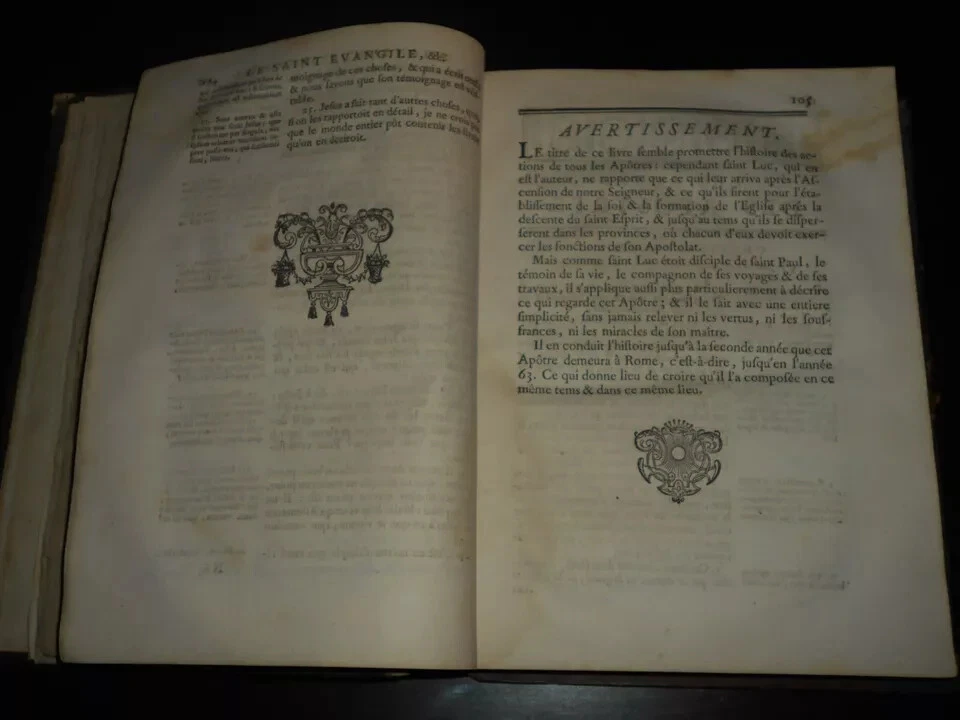 LE SAINT EVANGILE, &c.
moignage de ces choses, & qui a écrit
& nous savons que son témoignage est véri-
table.
25. Jesus a fait tant d'autres choses, que
si on les rapportoit en détail, je ne crois
que le monde entier pût contenir les livres
qu'on en écriroit.
105
AVERTISSEMENT.
LE titre de ce livre semble promettre l'histoire des ac-
tions de tous les Apôtres: cependant saint Luc, qui en
est l'auteur, ne rapporte que ce qui leur arriva après l'As-
cension de notre Seigneur, & ce qu'ils firent pour l'éta-
blissement de la foi & la formation de l'Eglise après la
descente du saint Esprit, & jusqu'au tems qu'ils se disper-
serent dans les provinces, où chacun d'eux devoit exer-
cer les fonctions de son Apostolat.
Mais comme saint Luc étoit disciple de saint Paul, le
témoin de sa vie, le compagnon de ses voyages & de ses
travaux, il s'applique aussi plus particulierement à décrire
ce qui regarde cet Apôtre; & il le fait avec une entiere
simplicité, sans jamais relever ni les vertus, ni les souf-
frances, ni les miracles de son maître.
Il en conduit l'histoire jusqu'à la seconde année que cet
Apôtre demeura à Rome, c'est-à-dire, jusqu'en l'année
63. Ce qui donne lieu de croire qu'il l'a composée en ce
même tems & dans ce même lieu.